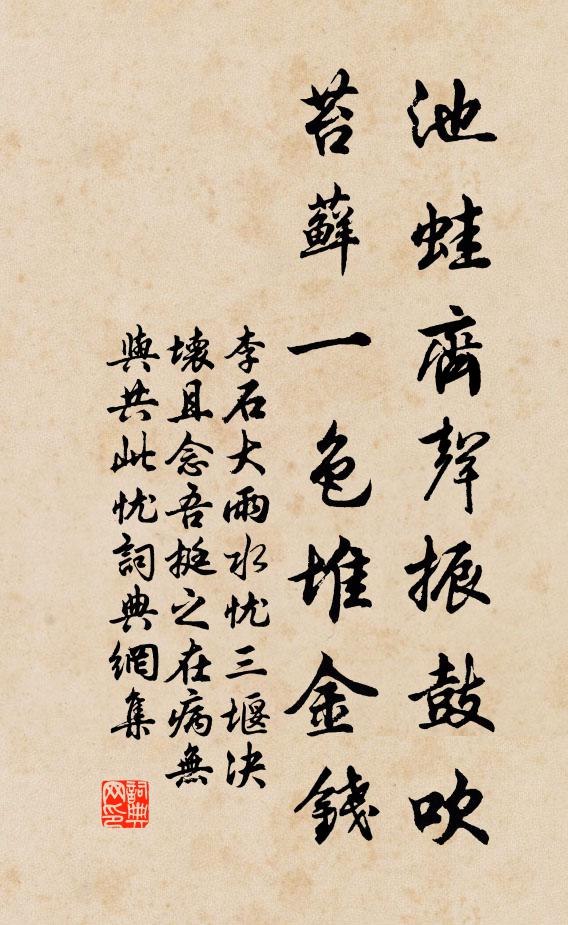 池蛙齊聲振鼓吹
苔蘚一色堆金錢
李石大雨水忧三堰决
壞且念吾挺之在病無
與共此忧詞典網集
詞典
网印